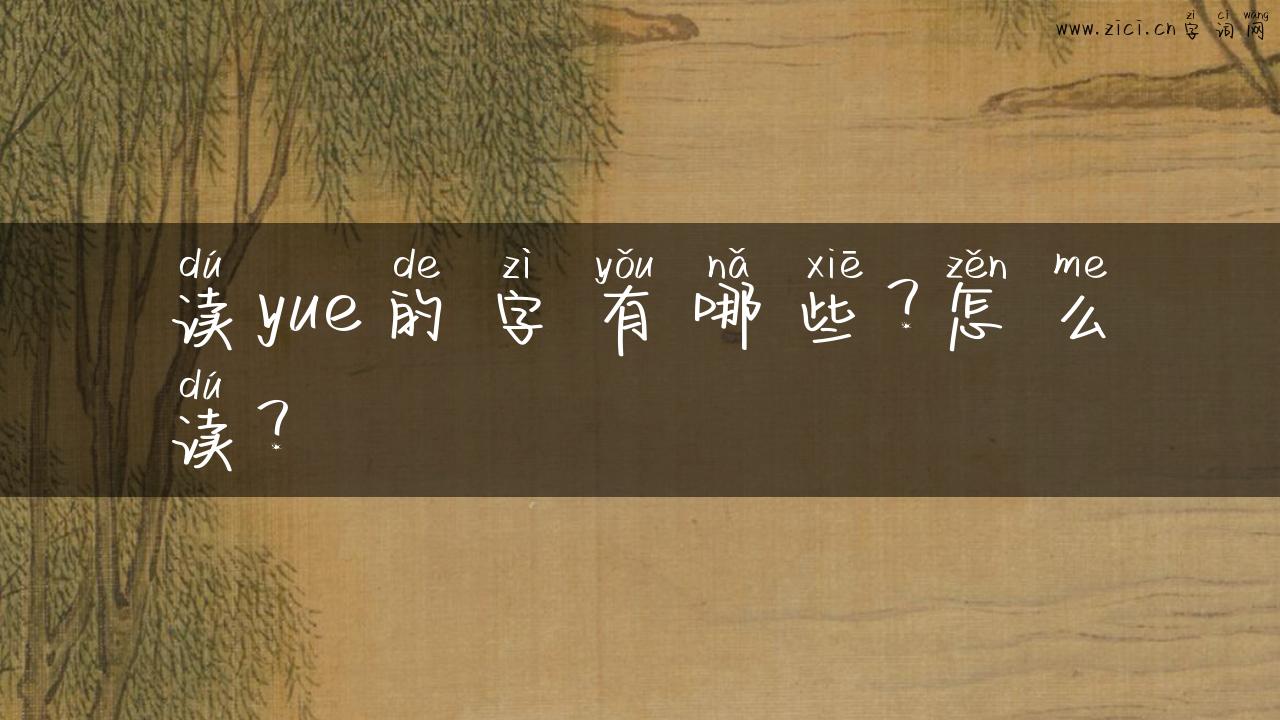 zì cí wǎng
www.zici.cn 字词网
dú de zì yǒu nǎ xiē zěn me
读yue的字有哪些？怎么
dú
读？